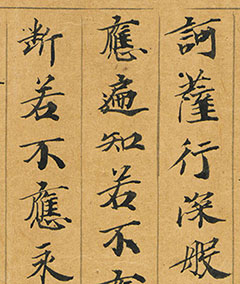 訶薩行深般
應遍知若不
断若不應永